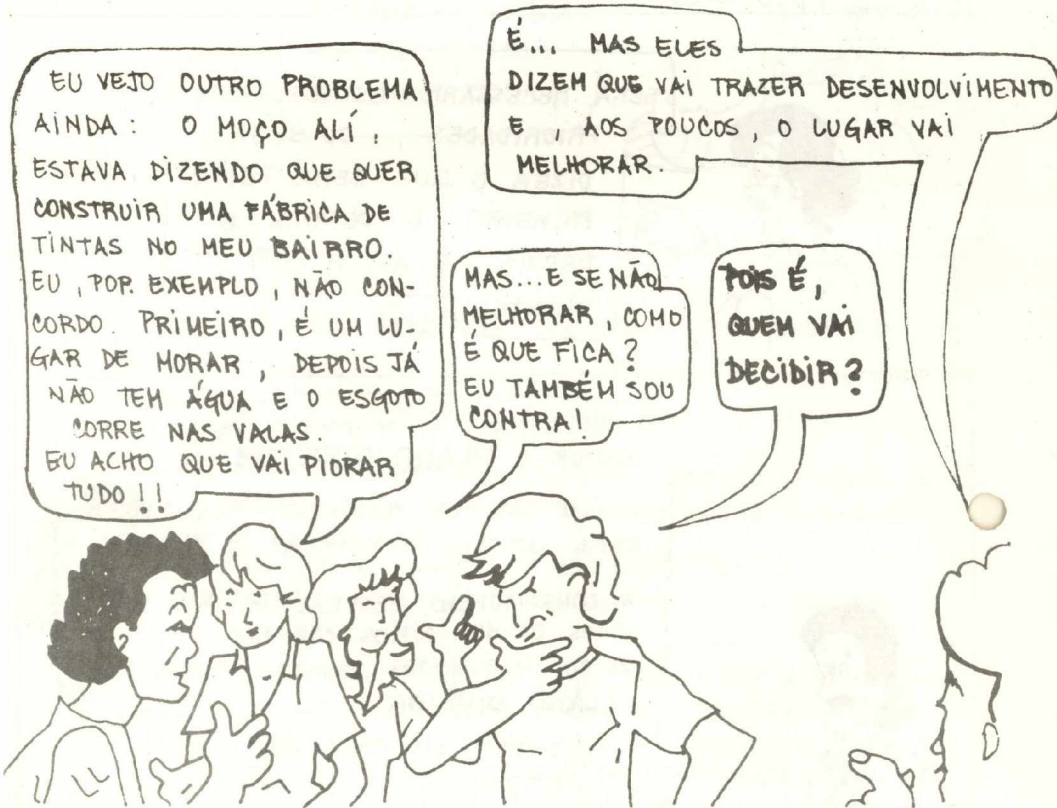 EU VEJO OUTRO PROBLEMA
AINDA: O MOÇO ALÍ.
ESTAVA DIZENDO QUE QUER
CONSTRUIR UMA FÁBRICA DE
TINTAS NO MEU BAIRRO.
EU, POR. EXEMPLO, NÃO CON-
CORDO. PRIMEIRO, É UM LU-
GAR DE MORAR, DEPOIS JÁ
NÃO TEM ÁGUA E O ESGOTO
CORRE NAS VALAS.
EU ACHO QUE VAI PIORAR
TUDO!!
É... MAS ELES
DIZEM QUE VAI TRAZER DESENVOLVIMENTO
E AOS POUCOS, O LUGAR VAI
MELHORAR..
MAS...E SE NÃO
MELHORAR, COMO
É QUE FICA?
EU TAMBÉM SOU
CONTRA!
POIS É,
QUEM VAI
DECIDIR?